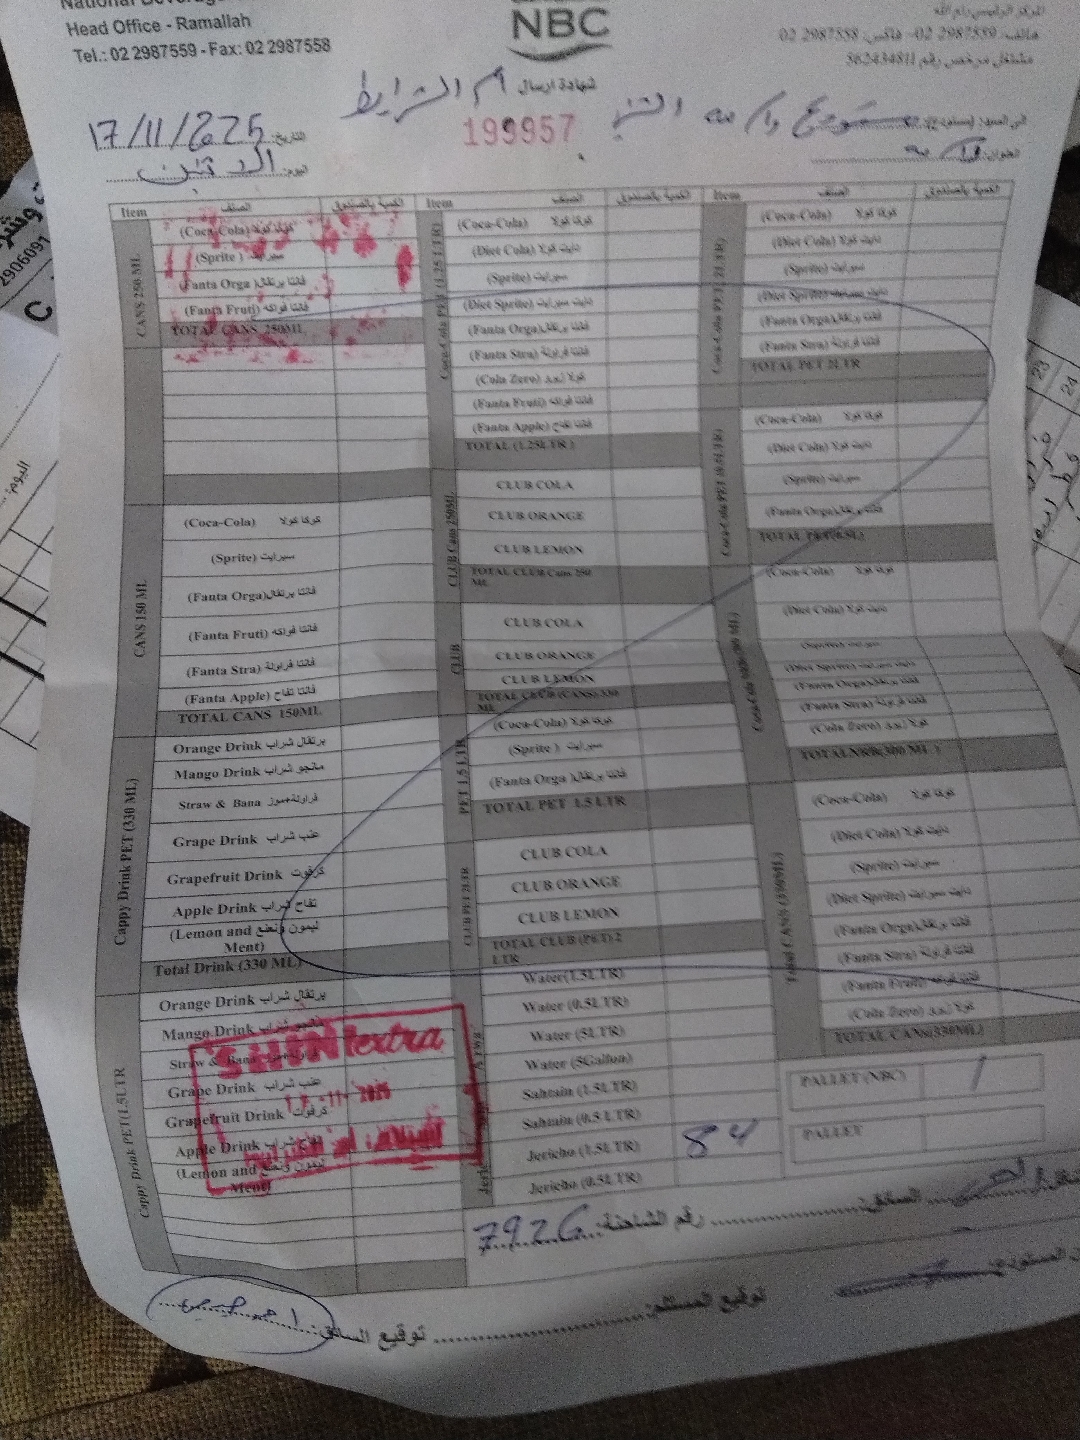 Head Office - Ramallah
Tel.: 02 2987559 - Fax: 02 2987558
NBC
المركز الرئيسي رام الله
هاتف: 2987559 02 - فاكس: 2987558 02
مشتغل مرخص رقم 562434811
شهادة ارسال
ام الشرايط
199957
التاريخ: 17/11/2025
اليوم: الاثنين
Item الصنف الكمية بالصندوق
CANS 250 ML
(Coca-Cola) كوكا كولا
(Sprite) سبرايت
(Fanta Orga) فانتا برتقال
(Fanta Fruti) فانتا فواكه
TOTAL CANS 250ML
CANS 150 ML
(Coca-Cola) كوكا كولا
(Sprite) سبرايت
(Fanta Orga) فانتا برتقال
(Fanta Fruti) فانتا فواكه
(Fanta Stra) فانتا فراولة
(Fanta Apple) فانتا تفاح
TOTAL CANS 150ML
Cappy Drink PET (330 ML)
Orange Drink برتقال شراب
Mango Drink مانجو شراب
Straw & Bana فراولة+موز
Grape Drink عنب شراب
Grapefruit Drink كرفوت
Apple Drink تفاح شراب
(Lemon and ليمون ونعنع
Ment)
Total Drink (330 ML)
Cappy Drink PET(1.5LTR
Orange Drink برتقال شراب
Mango Drink مانجو شراب
Straw & Bana
Grape Drink عنب شراب
Grapefruit Drink كرفوت
Apple Drink تفاح شراب
(Lemon and ليمون ونعنع
Ment)
extra
Item الصنف الكمية بالصندوق
Coca-Cola PET (1.25 LTR)
(Coca-Cola) كوكا كولا
(Diet Cola) دايت كولا
(Sprite) سبرايت
(Diet Sprite) دايت سبرايت
(Fanta Orga) فانتا برتقال
(Fanta Stra) فانتا فراولة
(Cola Zero) كولا زيرو
(Fanta Fruti) فانتا فواكه
(Fanta Apple) فانتا تفاح
TOTAL (1.25LTR )
CLUB Cans 250ML
CLUB COLA
CLUB ORANGE
CLUB LEMON
TOTAL CLUB Cans 250
ML
CLUB
CLUB COLA
CLUB ORANGE
CLUB LEMON
TOTAL CLUB (CANS) 330
ML
PET 1.5 LTR
(Coca-Cola) كوكا كولا
(Sprite ) سبرايت
(Fanta Orga) فانتا برتقال
TOTAL PET 1.5 LTR
CLUB PET 2LTR
CLUB COLA
CLUB ORANGE
CLUB LEMON
TOTAL CLUB (PET) 2
LTR
Water(1.5LTR)
Water (0.5LTR)
Water (5LTR)
Water (5Gallon)
Sahtain (1.5LTR)
Sahtain (0.5 LTR)
Jericho (1.5LTR) 84
Jericho (0.5LTR)
Item الصنف الكمية بالصندوق
(Coca-Cola) كوكا كولا
(Diet Cola) دايت كولا
(Sprite) سبرايت
(Diet Sprite) دايت سبرايت
(Fanta Orga) فانتا برتقال
(Fanta Stra) فانتا فراولة
TOTAL PET 2LTR
(Coca-Cola) كوكا كولا
(Diet Cola) دايت كولا
(Sprite) سبرايت
(Fanta Orga) فانتا برتقال
(Coca-Cola) كوكا كولا
(Diet Cola) دايت كولا
(Sprite) سبرايت
(Diet Sprite) دايت سبرايت
(Fanta Orga) فانتا برتقال
(Fanta Stra) فانتا فراولة
(Cola Zero) كولا زيرو
(Coca-Cola) كوكا كولا
(Diet Cola) دايت كولا
(Sprite) سبرايت
(Diet Sprite) دايت سبرايت
(Fanta Orga) فانتا برتقال
(Fanta Stra) فانتا فراولة
(Fanta Fruti) فانتا فواكه
(Cola Zero) كولا زيرو
TOTAL CANs(330ML)
PALLET (NBC) 1
PALLET
السائق:
رقم الشاحنة: 7926
توقيع المستلم:
توقيع السائق: